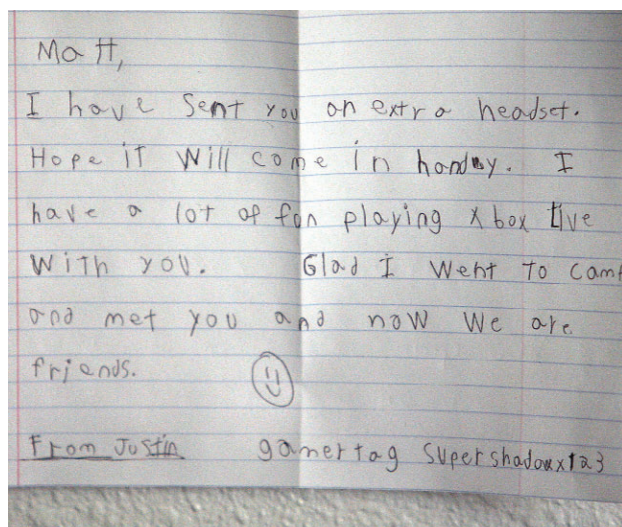 Matt,
I have sent you an extra headset.
Hope it will come in handy. I
have a lot of fun playing Xbox Live
with you. Glad I went to camp
and met you and now we are
friends.
From Justin gamertag supershadowx123